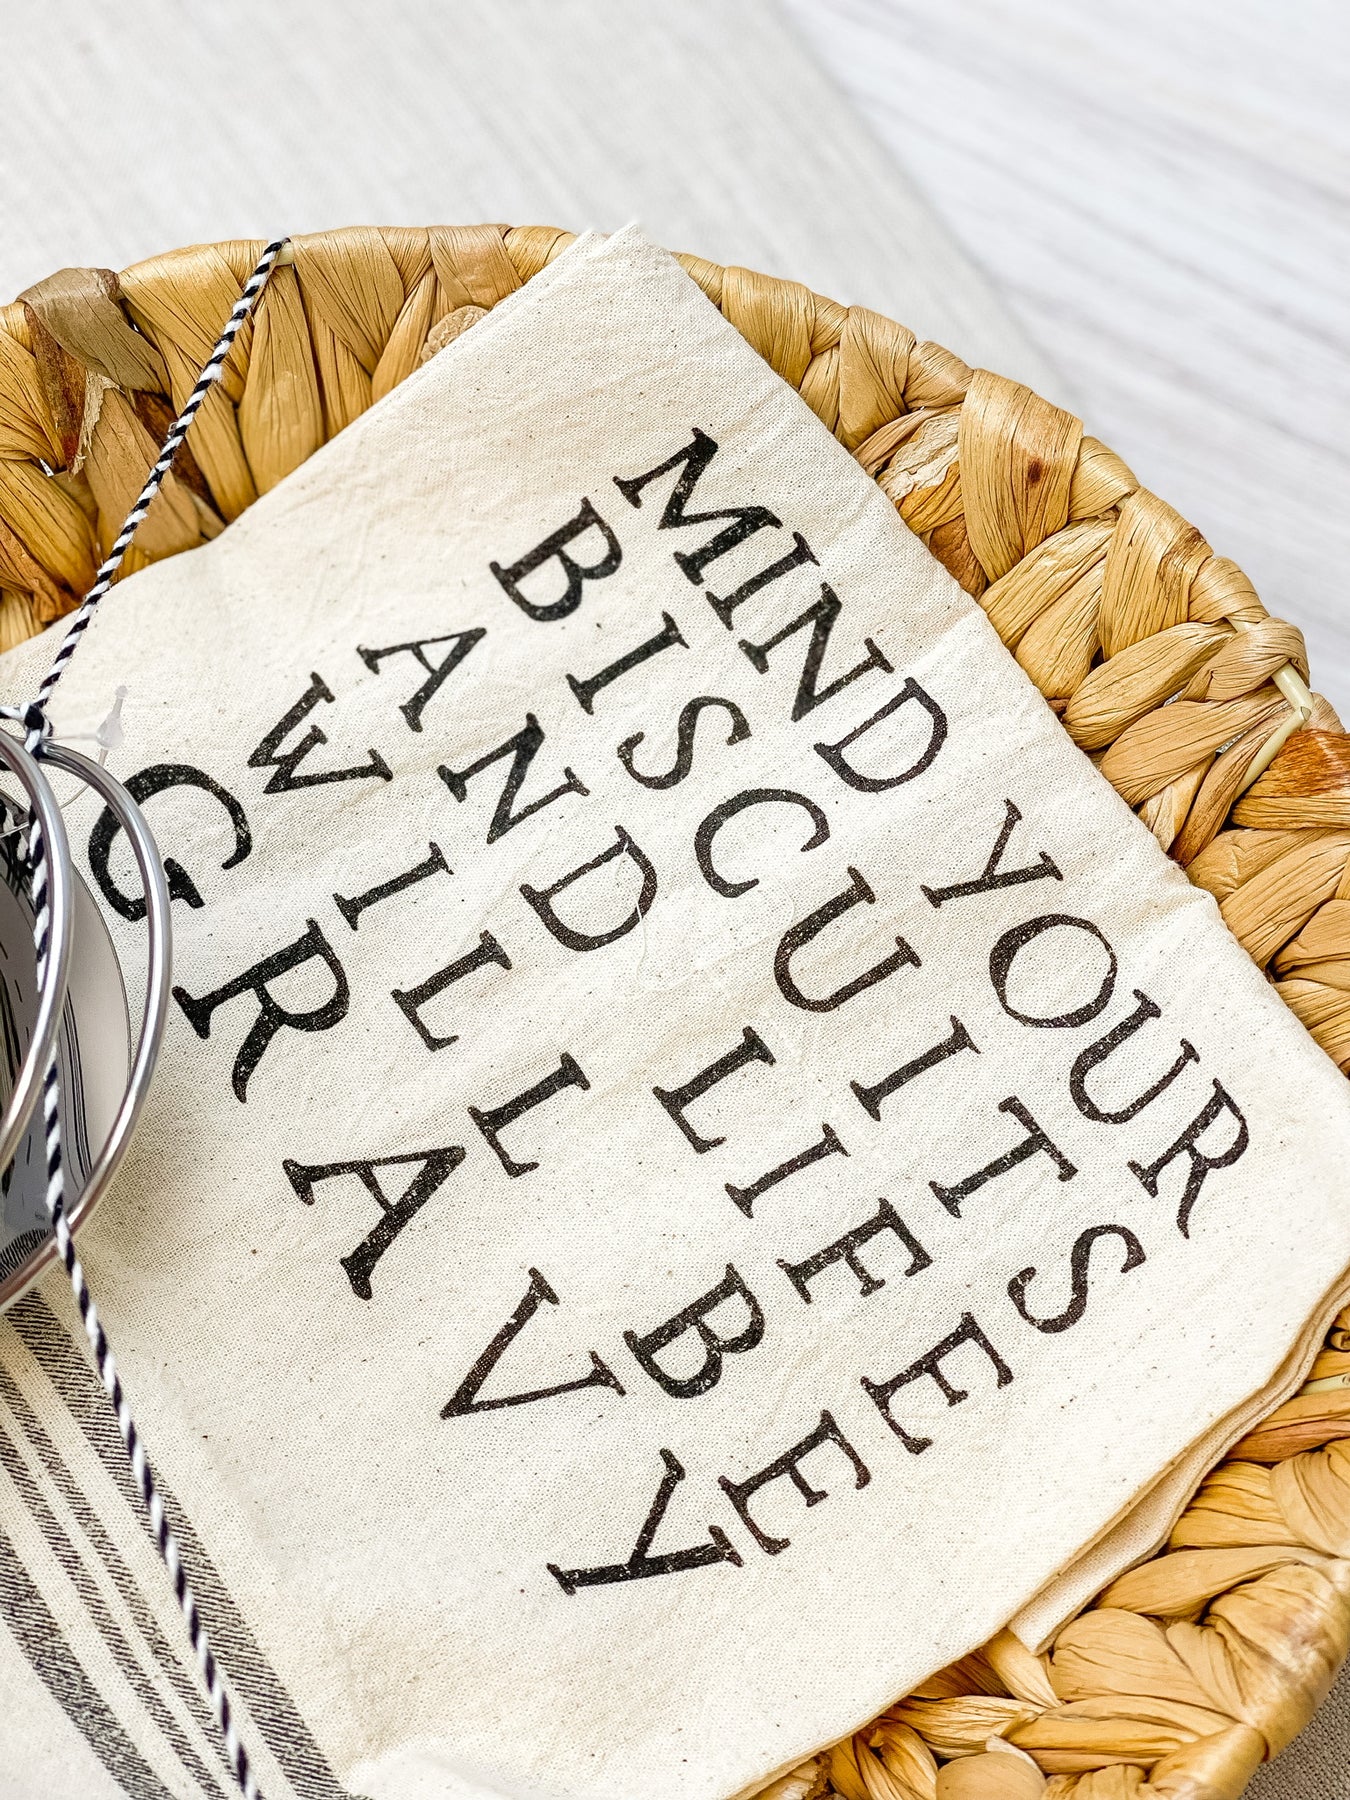 MIND YOUR
BISCUITS
AND LIFE
WILL BE
GRAVY